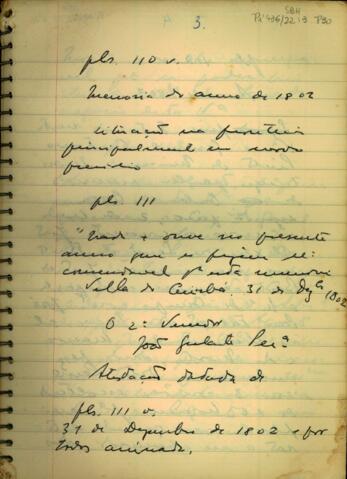 3.
SBH
Pi 436/22.19 P30
pls. 110 v.
Memoria do anno de 1802
situação na fronteira
principalmente em nosso
presidio
pls. 111
"Nada + ouve no presente
anno que se fizesse re=
comendavel pª esta memoria
Villa do Cuiabá 31 de Dezbrº 1802
O 2º Vereador
João
Anotação datada de
pls. 111 v.
31 de Dezembro de 1802 e por
todos assinada.